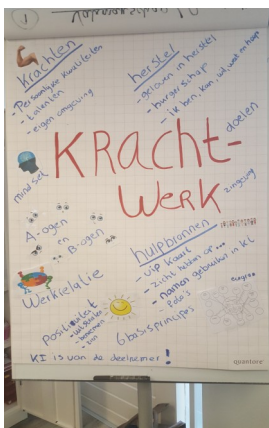 1
Krachten
- Persoonlijke kwaliteiten
- talenten
- eigen omgeving
herstel
- geloven in herstel
- burgerschap
- ik ben, kan, wil, weet en hoop
doelen
KRACHT-
WERK
mindset
zingeving
A-ogen
en
B-ogen
hulpbronnen
- VIP kaart
- zicht hebben op...
- namen gebruiken in KL
Werkrelatie
Positiviteit
6 basisprincipes
KI is van de deelnemer!
quantore